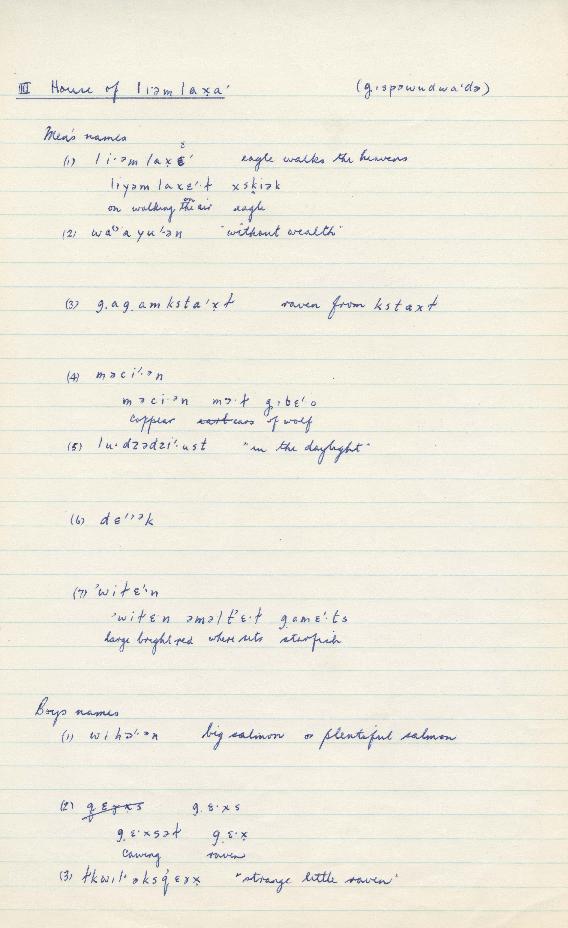 III House of li·əmlax̣a' (g̣ɩspəwudwa·də)
Men's names
(1) li·əmlaxɛ' eagle walks the heavens
liyəmlaxɛ'·ɬ xsḳiək
on walking on the air eagle
(2) wa'ayu'·ən "without wealth"
(3) g̣ag̣amksta'x̣ɬ raven from kstaxɬ
(4) məci'·ən
məci·ən mə·ɬ g̣ɩbɛ'o
copper ears of wolf
(5) lu·dzədzi'·ust "in the daylight"
(6) dɛ'''ək
(7) 'wiɬɛ'·n
'wiɬɛ·n əməlt'ɛ·ɬ g̣amɛ'·ts
large bright red where sits starfish
Boys names
(1) wihə'·ən big salmon or plentiful salmon
(2) g̣ɛ·xs
g̣ɛ·xsəɬ g̣ɛ·x̣
cawing raven
(3) ɬkwil'əksq'ɛəx̣ "strange little raven"